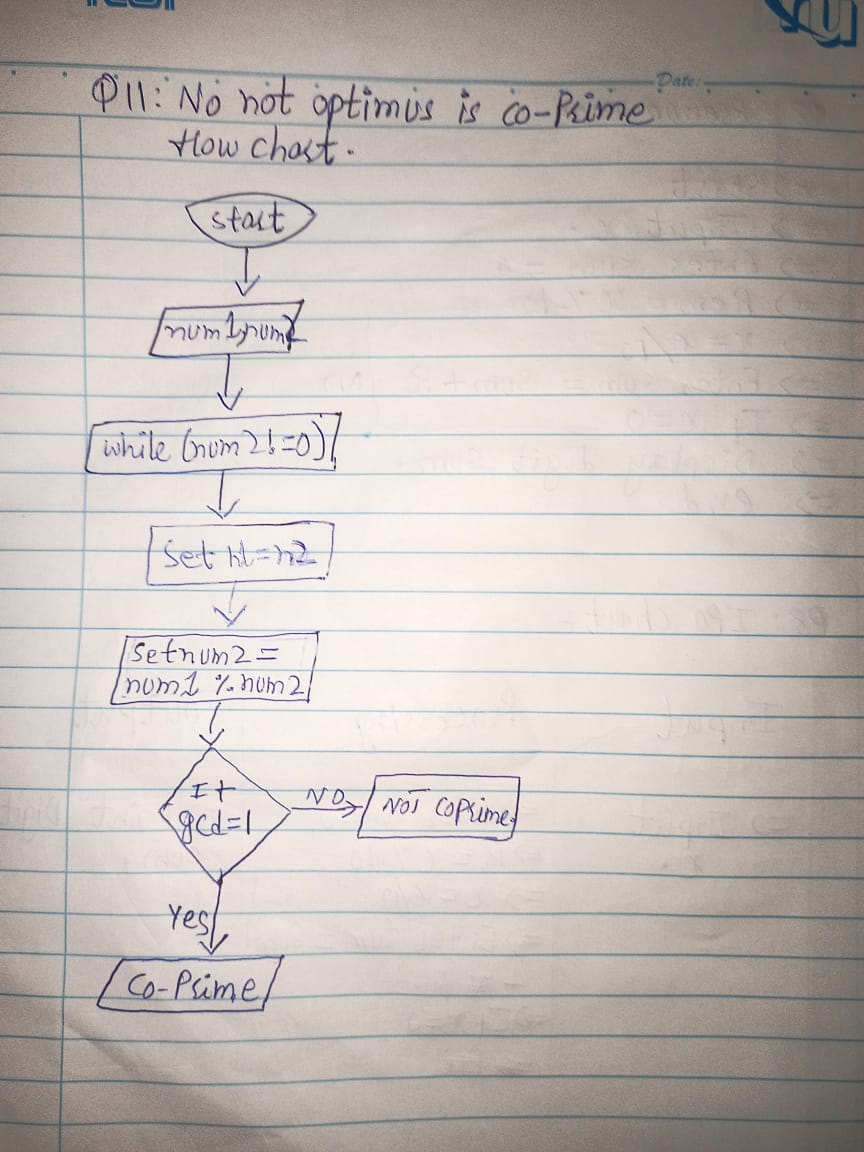 Date:
Q11: No not optimus is co-Prime
flow chart.
start
num1,num2
while (num2!=0)
Set n1=n2
Set num2=
num1 % num2
If
gcd=1
NO
NOT coprime
Yes
Co-Prime